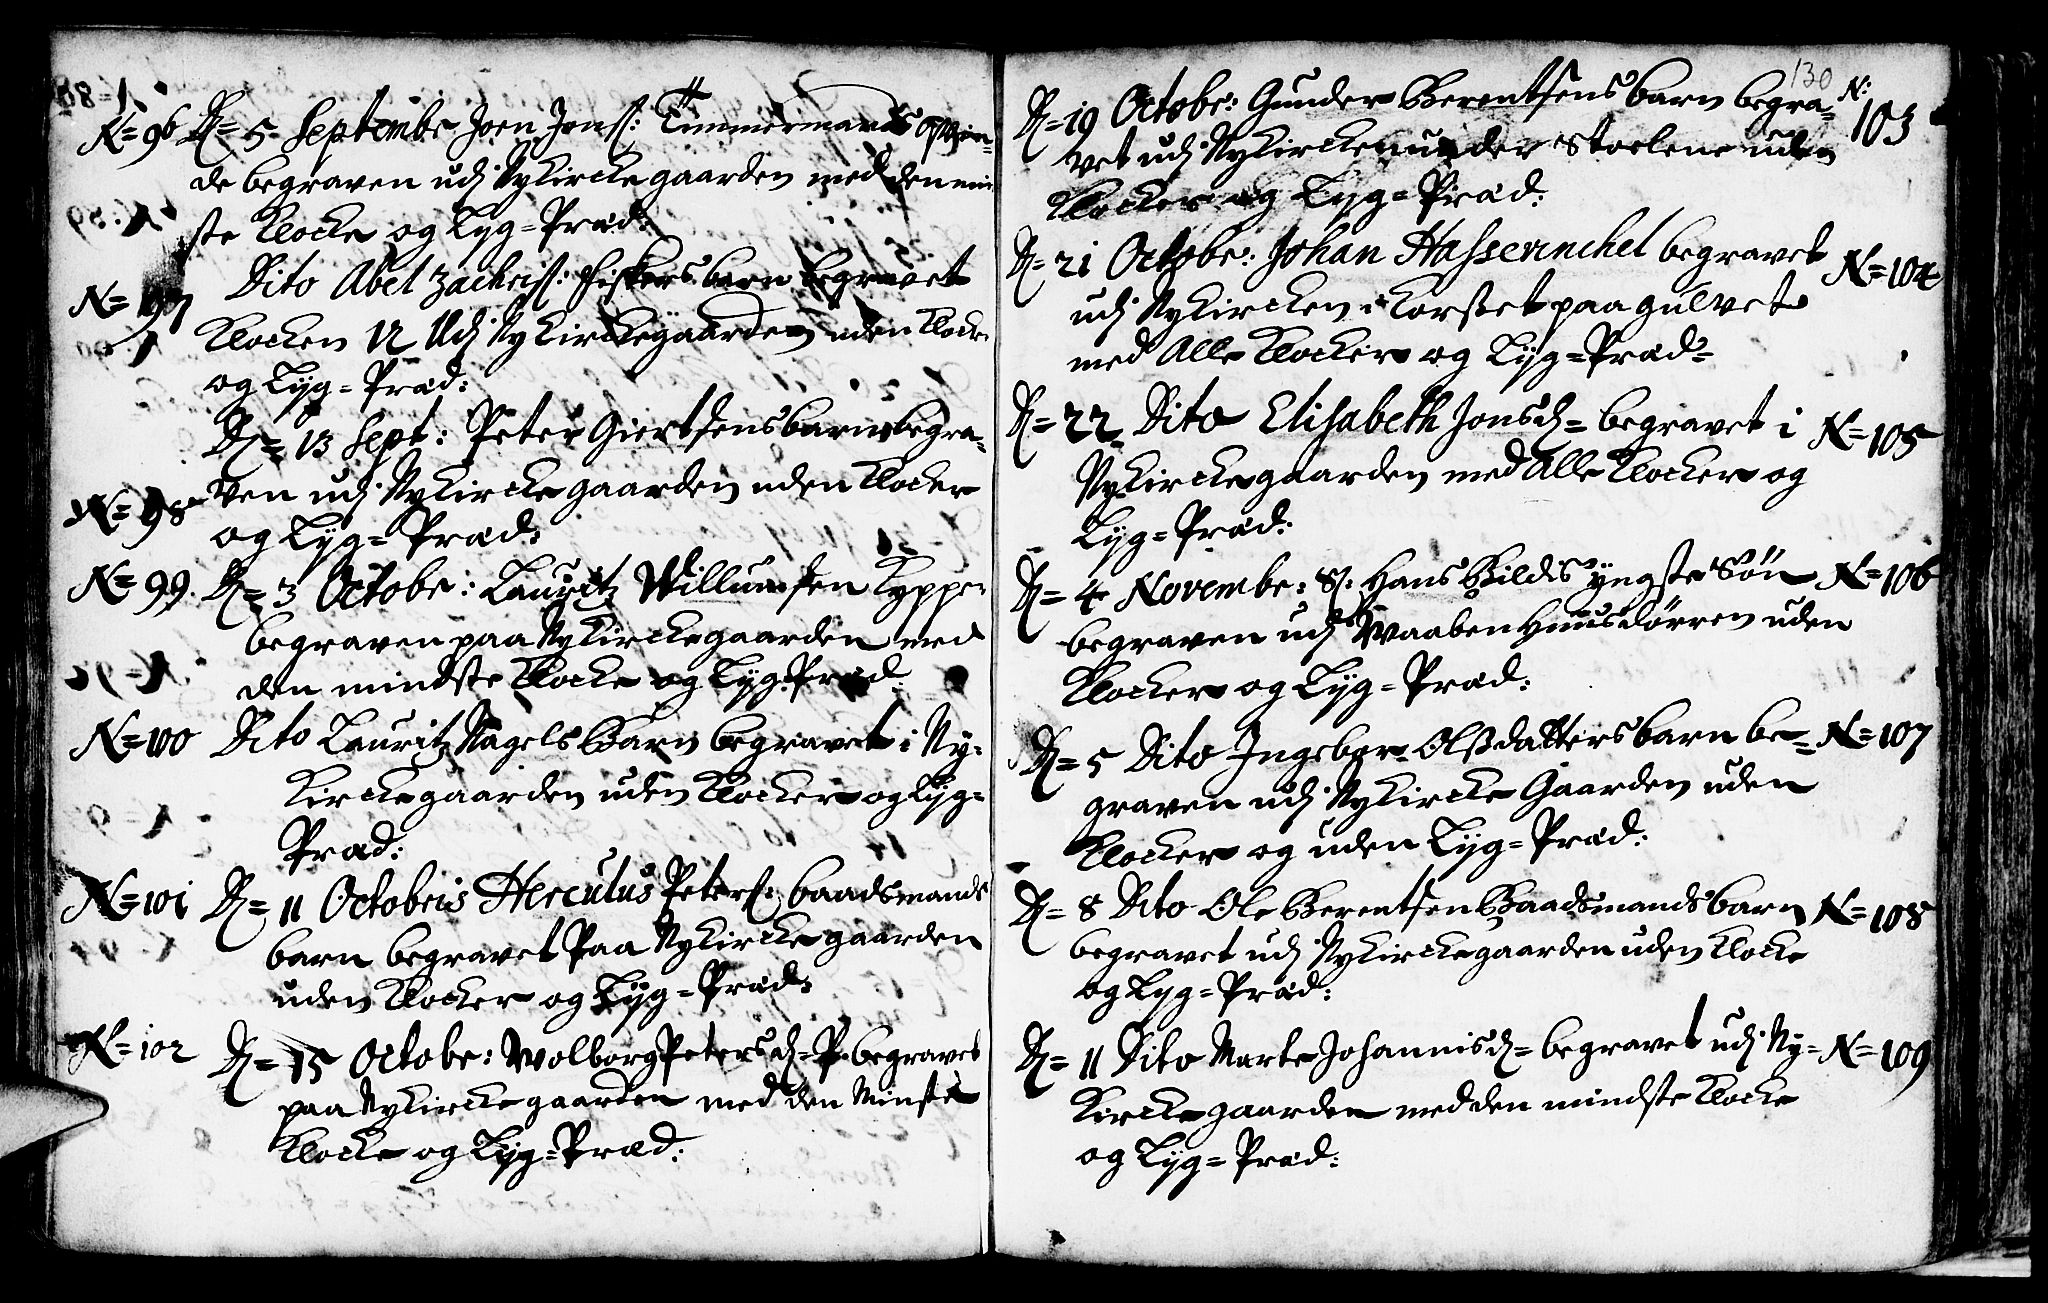 N=96 D= 5 Septembe Joen Jons: Timmermands Qvin=
de begraven udj Nykircke gaarden med den min
ste Klocke og Lyg=Præd:
N=97 Dito Abel Zachris: Fiskers barn begravet
Klocken 12 Udj Nykirckegaarden uden Klocke
og Lyg=Præd:
D= 13 Sept: Peter Giertsens barn begra=
N=98 ven udj Nykircke gaarden uden Klocker
og Lyg=Præd:
N=99. D= 3 Octobe: Lauritz Willumsen Kypper
begraven paa Nykircke gaarden med
den mindste Klocke og Lyg=Præd:
N=100 Dito Lauritz Nagels Barn begravet i Ny=
Kircke gaarden uden Klocker og Lyg=
Præd:
N=101 D= 11 Octobris Herculus Peters: baadsmands
barn begravet Paa Nykircke gaarden
uden Klocker og Lyg=Præd:
N=102 D= 15 Octobe: Wolborg Petersd= P. begravet
paa Nykircke gaarden med den Minste
Klocke og Lyg=Præd:
130
D= 19 Octobe: Gunder Berentsens barn begra= N: 103
vet udj Nykircken under Stoelene uden
Klocker og Lyg=Præd:
D= 21 Octobe: Johan Hassevinchel begravet N=104
udj Nykircken i Korstet paa gulvet
med Alle Klocker og Lyg=Præd=
D= 22 Dito Elisabeth Jonsd= begravet i N=105
Nykircke gaarden med Alle Klocker og
Lyg=Præd:
D= 4 Novembe: S: Hans Bildts yngste Søn N=106
begraven udj Waaben Huusdørren uden
Klocker og Lyg=Præd:
D= 5 Dito Ingebor Olsdatters barn be= N=107
graven udj Nykircke Gaarden uden
Klocker og uden Lyg=Præd:
D= 8 Dito Ole Berentsen Baadsmands barn N=108
begravet udj Nykircke gaarden uden Klocke
og Lyg=Præd:
D= 11 Dito Marte Johannisd= begravet udj Ny= N=109
Kircke gaarden med den mindste Klocke
og Lyg=Præd: